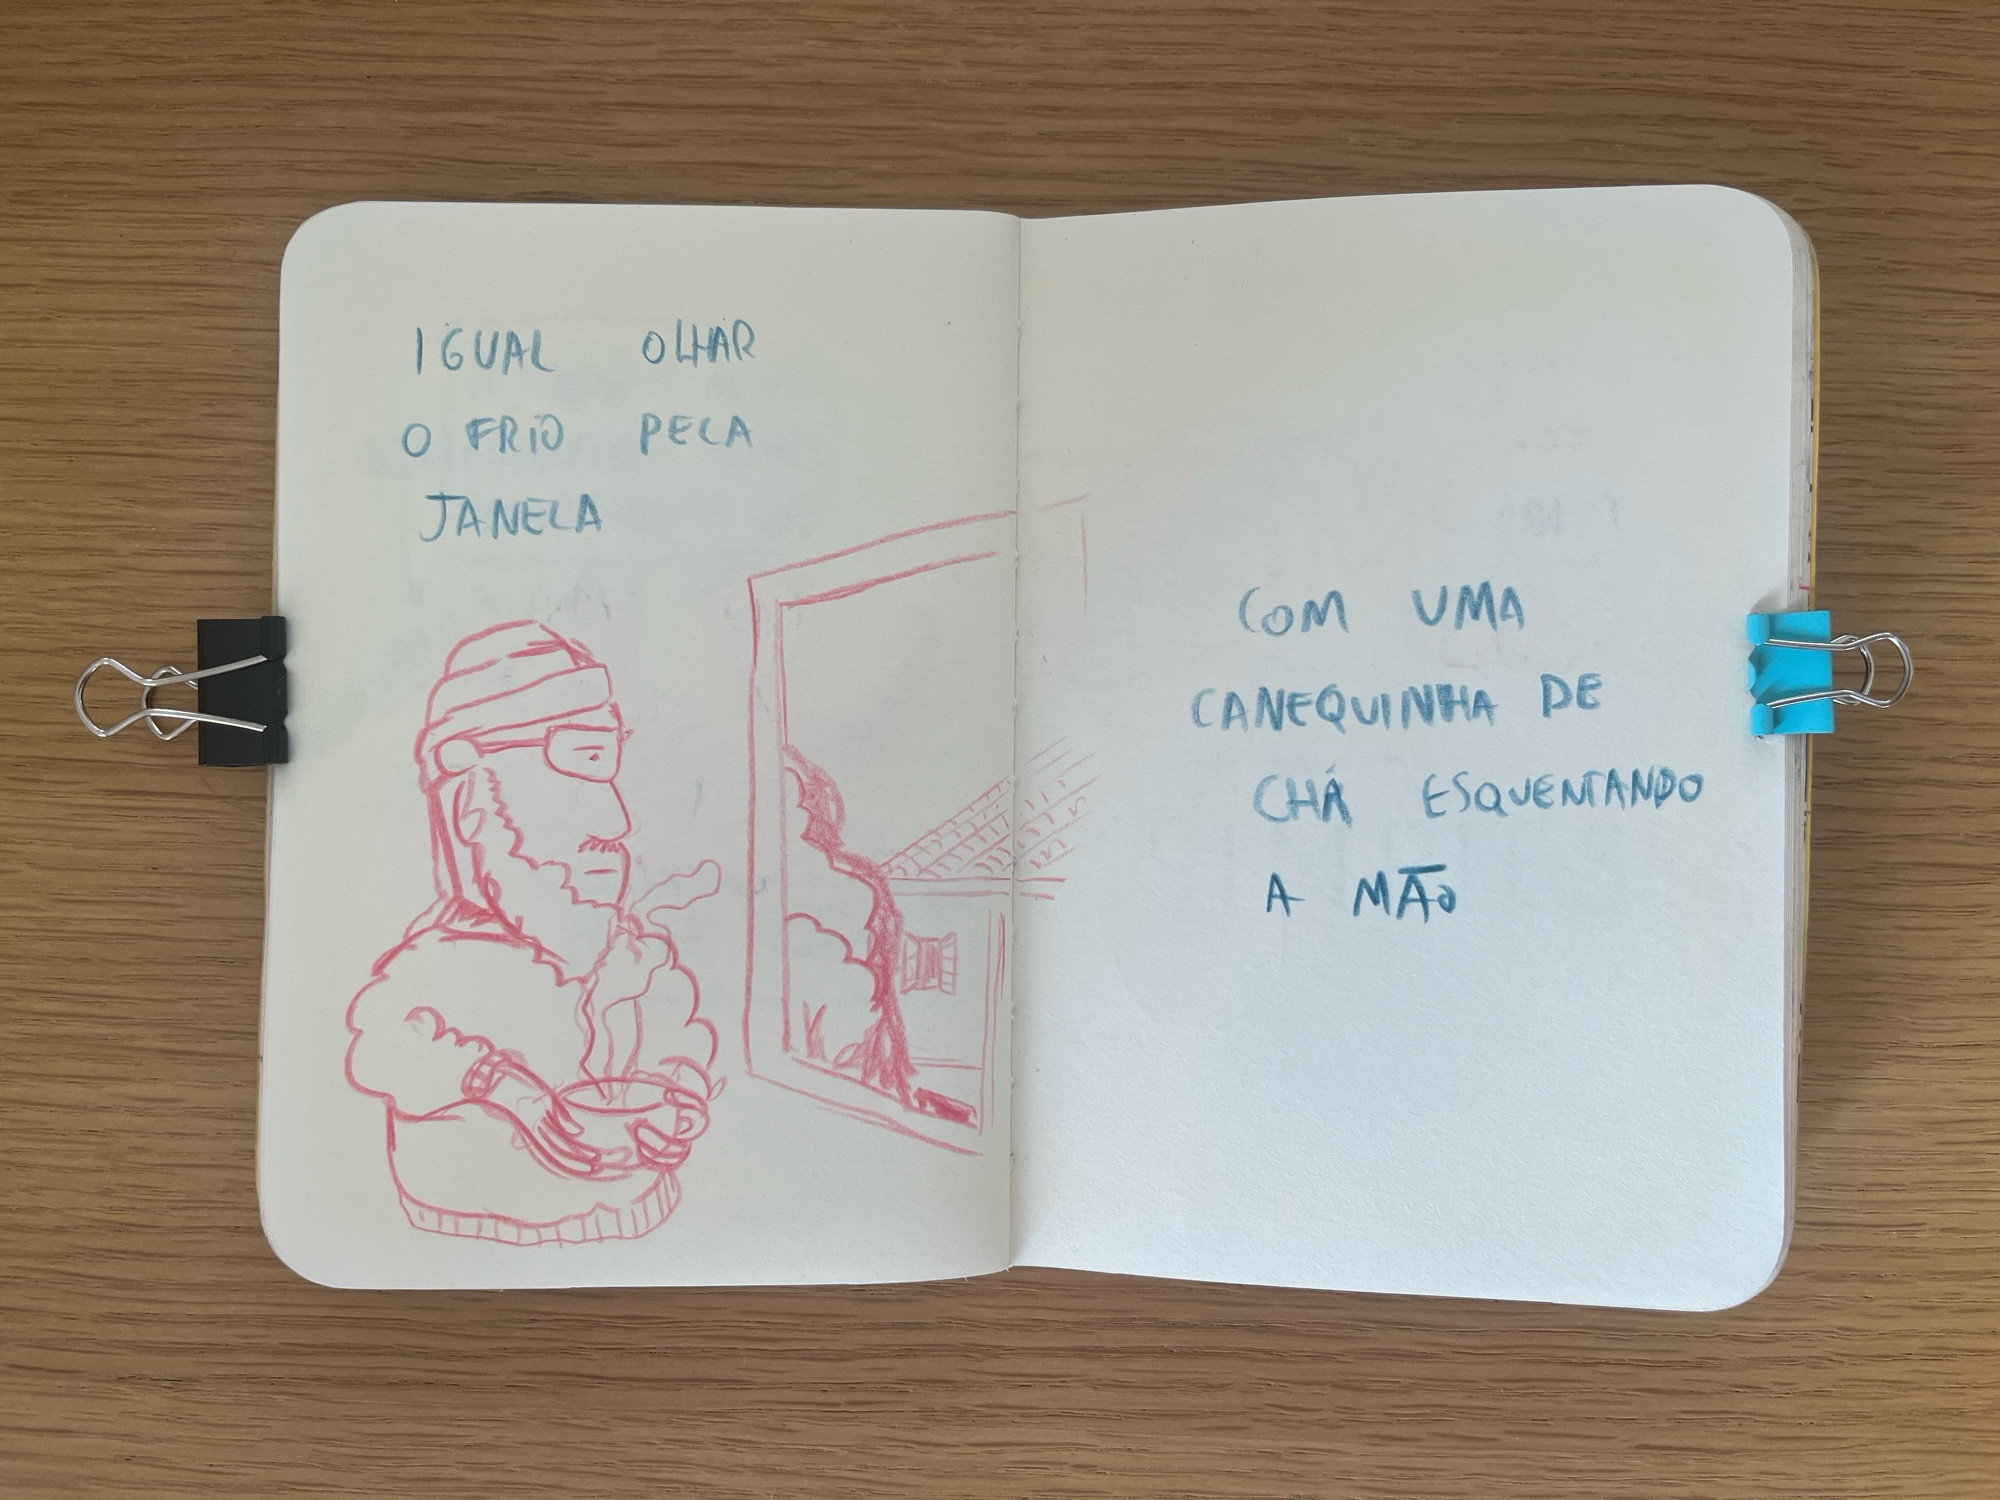 IGUAL OLHAR
O FRIO PELA
JANELA
COM UMA
CANEQUINHA DE
CHÁ ESQUENTANDO
A MÃO